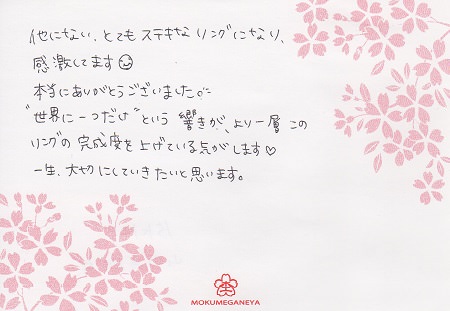 他にない、とてもステキなリングになり、
感激してます
本当にありがとうございました。
"世界に一つだけ"という響きが、より一層この
リングの完成度を上げている気がします♡
一生、大切にしていきたいと思います。
MOKUMEGANEYA